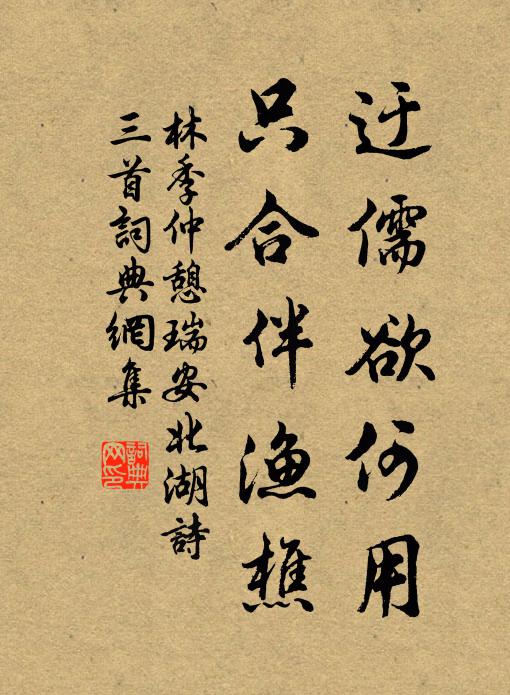 迂儒欲何用
只合伴漁樵
林季仲憩瑞安北湖詩
三首詞典網集
詞典网印